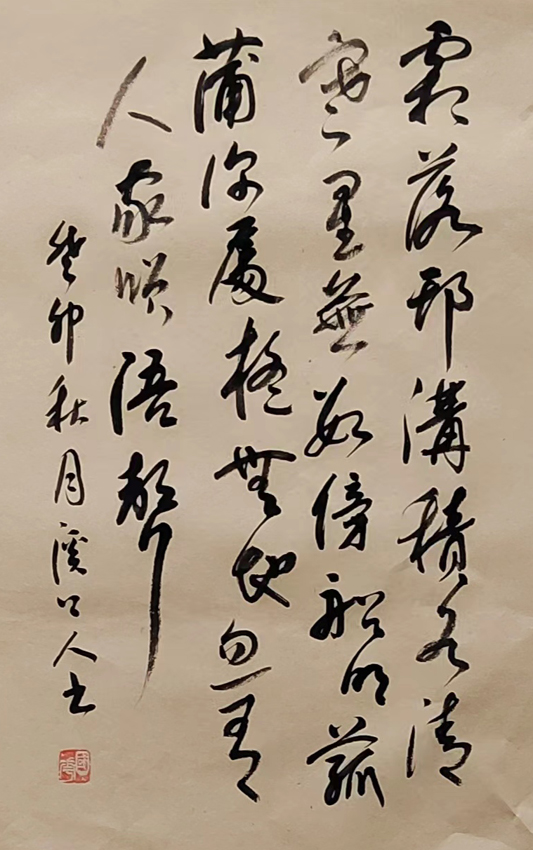 霜落邗溝積水清
寒星無數傍船明菰
蒲深處疑無地忽有
人家咲語聲
癸卯秋月溪口人书